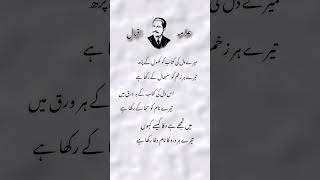 علامہ اقبال
میرے دل کی کتاب کو کھول کے پڑھ
تیرے ہر زخم کو سنبھال کے رکھا ہے
اس دل کی کتاب کے ہر ورق میں
تیرے نام کو سجا کے رکھا ہے
میں تجھے بے وفا کیسے کہوں
تیرے ہر درد کا نام وفا رکھا ہے
میرے دل کی
پڑھ
تیرے ہر زخم
ہر ورق میں
ہے